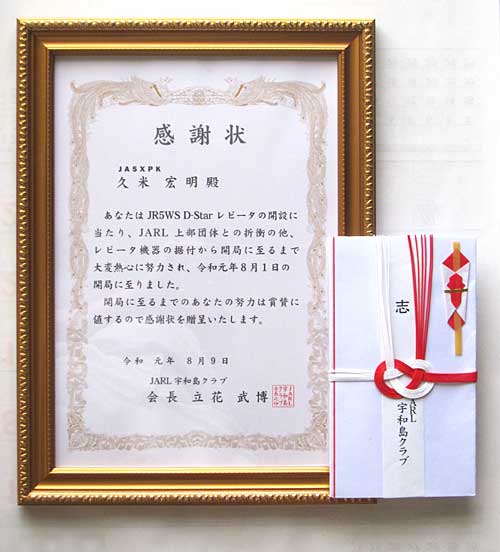 感謝状
JA5XPK
久米 宏明 殿
あなたは JR5WS D-Star レピータの開設に
当たり、JARL 上部団体との折衝の他、
レピータ機器の据付から開局に至るまで
大変熱心に努力され、令和元年8月1日の
開局に至りました。
開局に至るまでのあなたの努力は賞賛に
値するので感謝状を贈呈いたします。
令和 元年 8月9日
JARL 宇和島クラブ
会長 立花 武博
志
JARL
宇和島クラブ